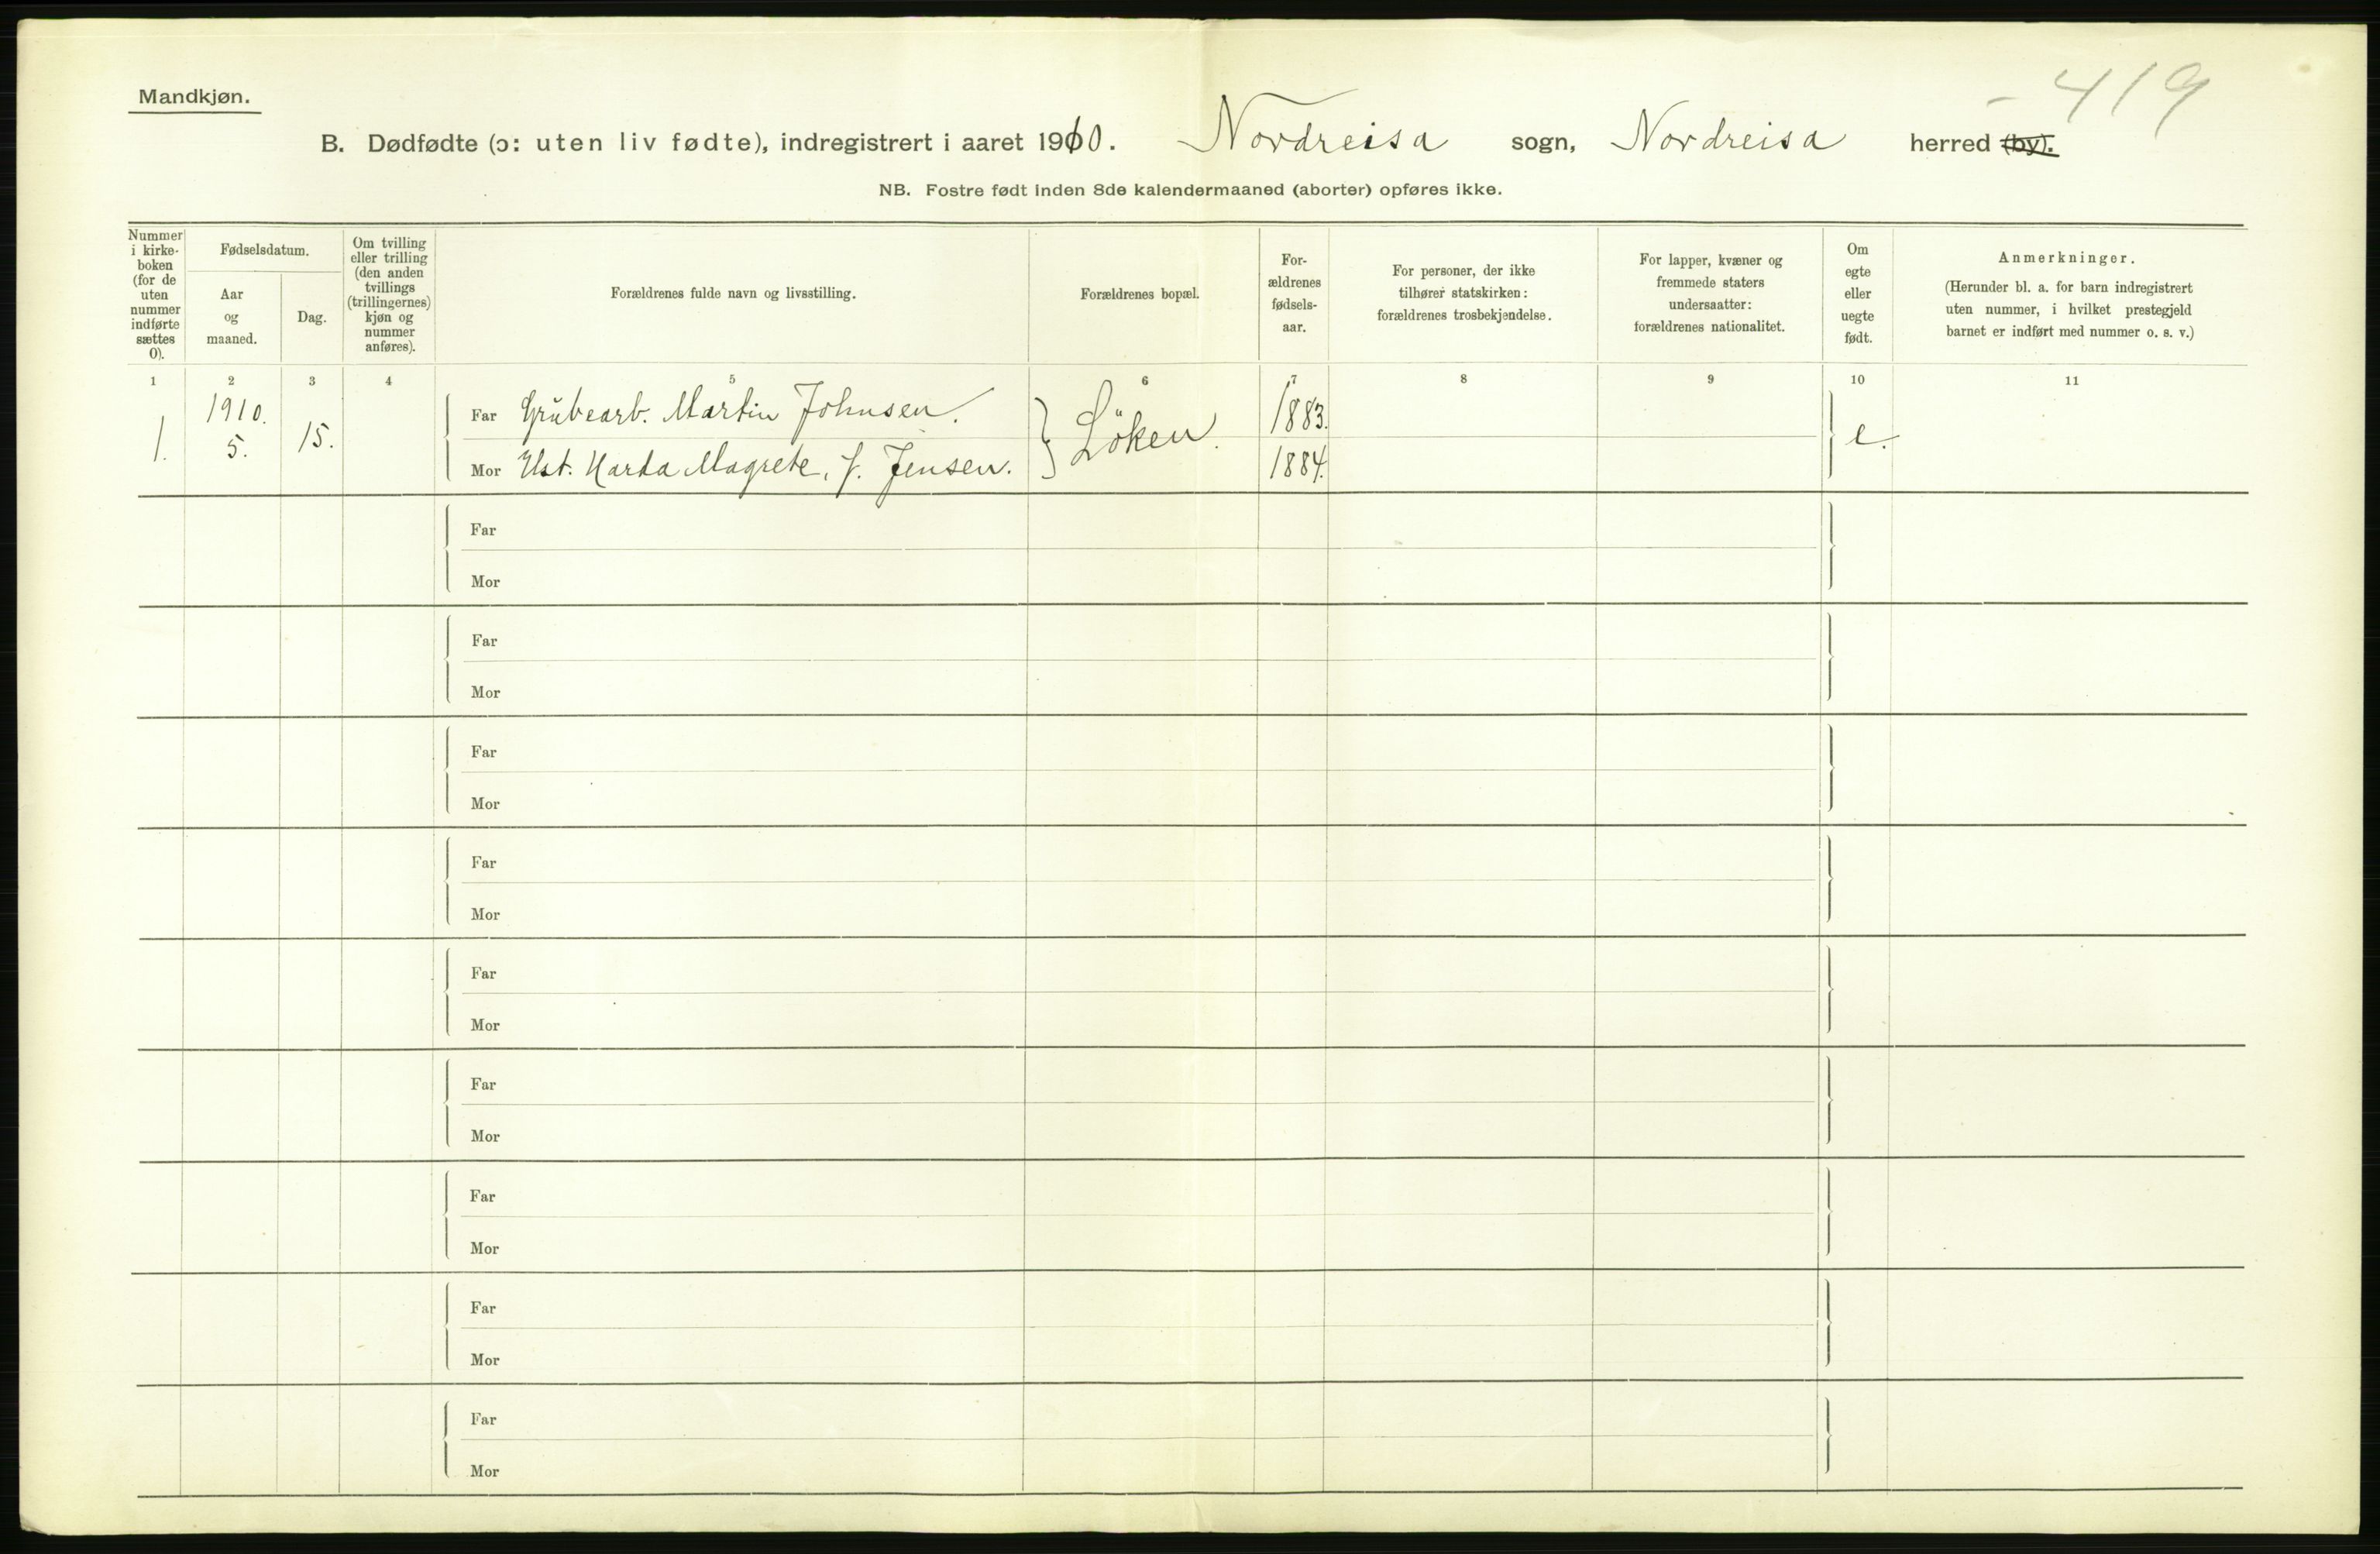 - 419
Mandkjøn.
B. Dødfødte (ɔ: uten liv fødte), indregistrert i aaret 1910. Nordreisa sogn, Nordreisa herred (by).
NB. Fostre født inden 8de kalendermaaned (aborter) opføres ikke.
Nummer
i kirke-
boken
(for de
uten
nummer
indførte
sættes
0).
Fødselsdatum.
Aar
og
maaned.
Dag.
Om tvilling
eller trilling
(den anden
tvillings
(trillingernes)
kjøn og
nummer
anføres).
Forældrenes fulde navn og livsstilling.
Forældrenes bopæl.
For-
ældrenes
fødsels-
aar.
For personer, der ikke
tilhører statskirken:
forældrenes trosbekjendelse.
For lapper, kvæner og
fremmede staters
undersaatter:
forældrenes nationalitet.
Om
egte
eller
uegte
født.
Anmerkninger.
(Herunder bl. a. for barn indregistrert
uten nummer, i hvilket prestegjeld
barnet er indført med nummer o. s. v.)
1 2 3 4 5 6 7 8 9 10 11
1. 1910. 5. 15.
Far Grubearb. Martin Johnsen. Löken. 1883. e.
Mor Ust. Marta Magrete, f. Jensen. 1884.
Far
Mor
Far
Mor
Far
Mor
Far
Mor
Far
Mor
Far
Mor
Far
Mor
Far
Mor
Far
Mor